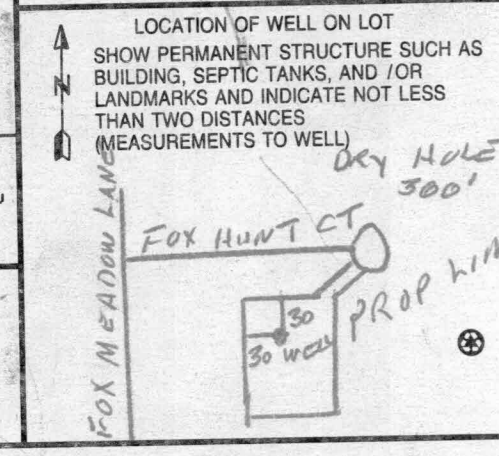 LOCATION OF WELL ON LOT
SHOW PERMANENT STRUCTURE SUCH AS
BUILDING, SEPTIC TANKS, AND /OR
LANDMARKS AND INDICATE NOT LESS
THAN TWO DISTANCES
(MEASUREMENTS TO WELL)
N
DRY HOLE
300'
FOX MEADOW LANE
FOX HUNT CT
PROP LIN
30
30 WELL